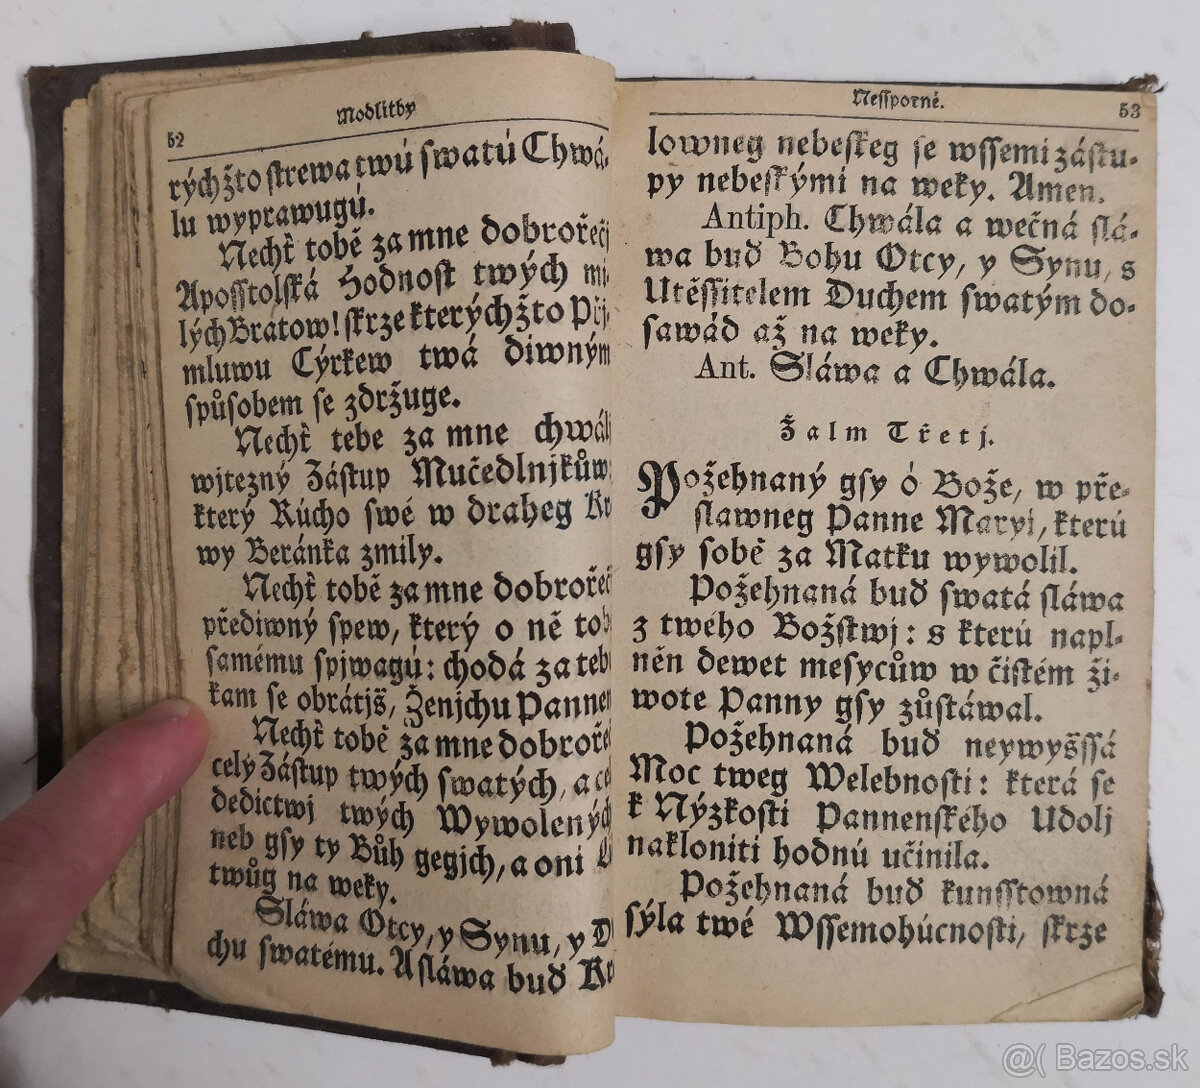 52
Modlitby
rýchžto strewa twú swatú Chwá-
lu wyprawugú.
Nechť tobě za mne dobrořeč
Aposstolská Hodnost twých mi
lých Bratow! skrze kterýchžto Přj-
mluwu Cýrkew twá diwným
spůsobem se zdržuge.
Nechť tebe za mne chwálj
wjtezný Zástup Mučedlnjkůw,
který Růcho swé w draheg Kr
wy Beránka zmily.
Nechť tobě za mne dobrořeč
přediwný spew, který o ně tob
samému spjwagú: chodá za teb
kam se obrátjš, Ženjchu Pannen
Nechť tobě za mne dobroře
celý Zástup twých swatých, a ce
dedictwj twých Wywolených
neb gsy ty Bůh gegjch, a oni L
twůg na weky.
Sláwa Otcy, y Synu, y D
chu swatému. A sláwa buď Kr
Nessporné.
53
lowneg nebeskeg se wssemi zástu-
py nebeskými na weky. Amen.
Antiph. Chwála a wečná slá-
wa buď Bohu Otcy, y Synu, s
Utěssitelem Duchem swatým do-
sawád až na weky.
Ant. Sláwa a Chwála.
Žalm Třetj.
Požehnaný gsy ó Bože, w pře-
slawneg Panne Maryi, kterú
gsy sobě za Matku wywolil.
Požehnaná buď swatá sláwa
z tweho Božstwj: s kterú napl-
něn dewet mesycůw w čistém ži-
wote Panny gsy zůstáwal.
Požehnaná buď neywyšssá
Moc tweg Welebnosti: která se
k Nýzkosti Pannenského Udolj
nakloniti hodnú učinila.
Požehnaná buď kunsstowná
sýla twé Wssemohúcnosti, skrze
@( Bazos.sk